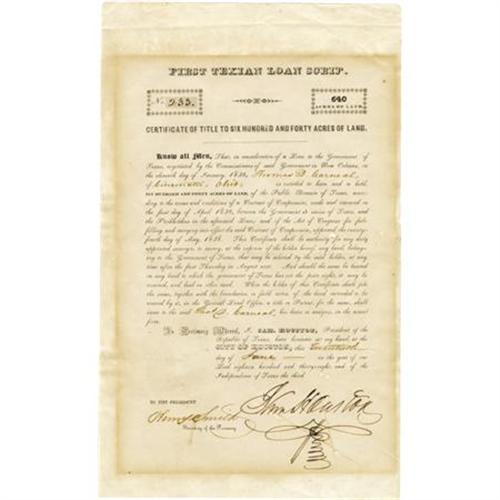 FIRST TEXIAN LOAN SCRIP.
No. 233.
640
ACRES OF LAND.
CERTIFICATE OF TITLE TO SIX HUNDRED AND FORTY ACRES OF LAND.
Know all Men, That, in consideration of a Loan to the Government of
Texas, negotiated by the Commissioners of said Government in New Orleans, on
the eleventh day of January, 1836, Thomas D. Carneal,
of Cincinnati, Ohio, is entitled to have and to hold,
SIX HUNDRED AND FORTY ACRES OF LAND, of the Public Domain of Texas, according
to the terms and conditions of a Contract of Compromise, made and entered on
the first day of April 1836, between the Government of Texas, and
the Stockholders in the aforesaid Loan; and of the Act of Congress for ful-
filling and carrying into effect said Contract of Compromise, approved the twenty-
fourth day of May, 1838. This Certificate shall be authority for any duly
appointed surveyor to survey, at the expense of the holder hereof, any land, belong-
ing to the Government of Texas, that may be selected by the said holder, at any
time after the first Thursday in August next. And should the same be located
on any land to which the government of Texas has not the prior right, it may be
removed, and had on other land. When the holder of this Certificate shall file
the same, together with the boundaries or field notes of the land surveyed
by it, in the General Land Office, a title or Patent, for the same, shall
issue to the said Thos. D. Carneal, his heirs or assigns, in the usual
form.
In Testimony Whereof, I, SAM. HOUSTON, President of the
Republic of Texas, have hereunto set my hand, at the
CITY OF HOUSTON, this
day of June in the year of our
Lord eighteen hundred and thirty-eight, and of the
Independence of Texas the third.
BY THE PRESIDENT
Sam Houston
Henry Smith
Secretary of the Treasury